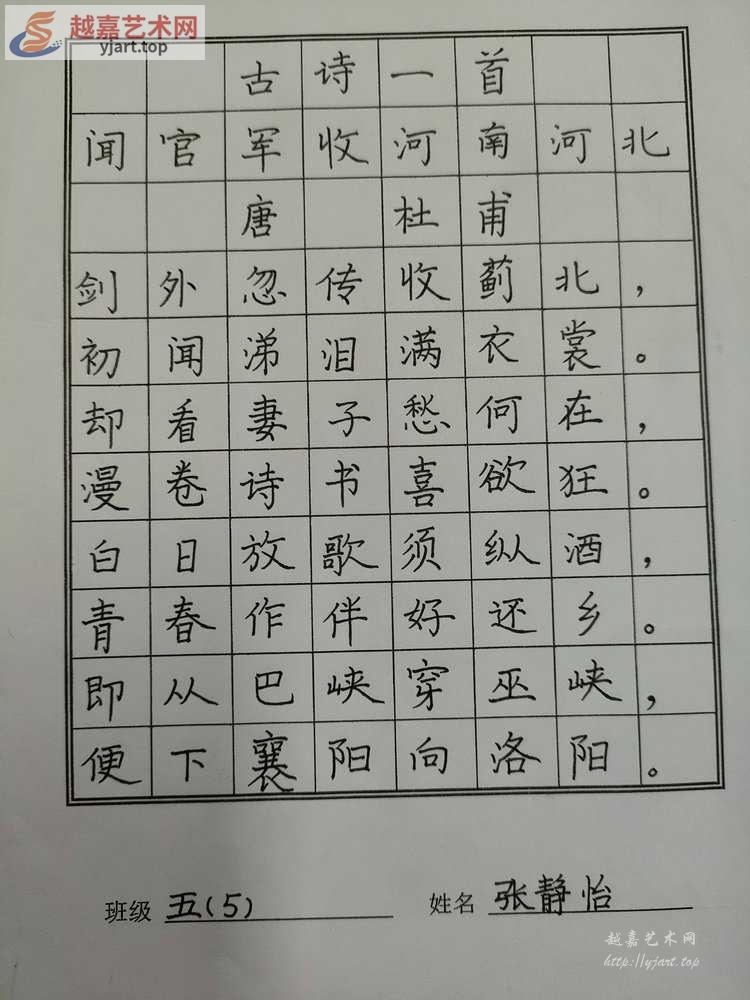 越嘉艺术网
yjart.top
古诗一首
闻官军收河南河北
唐 杜甫
剑外忽传收蓟北，
初闻涕泪满衣裳。
却看妻子愁何在，
漫卷诗书喜欲狂。
白日放歌须纵酒，
青春作伴好还乡。
即从巴峡穿巫峡，
便下襄阳向洛阳。
班级 五(5) 姓名 张静怡
越嘉艺术网
http://yjart.top